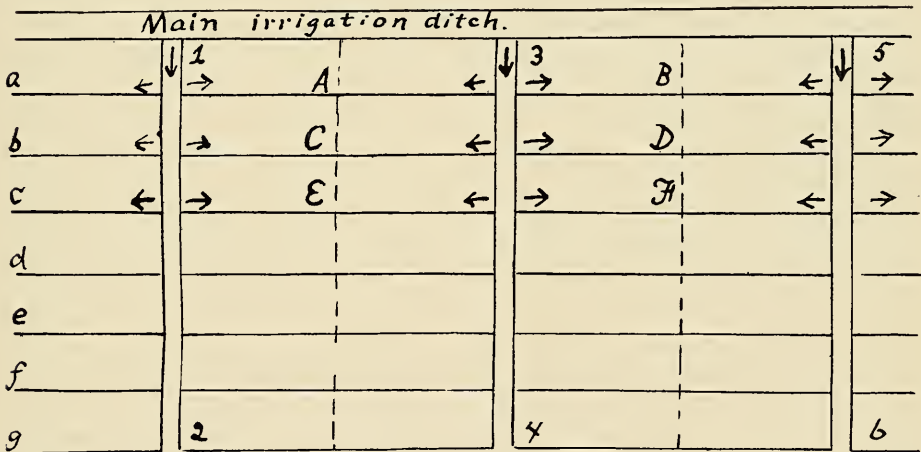 Main irrigation ditch.
1 3 5
a A B
b C D
c E F
d
e
f
g 2 4 6